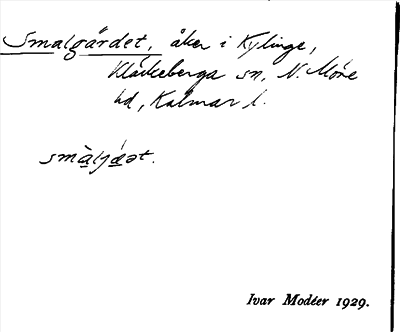 Smalgärdet, åker i Kylinge,
Kläckeberga sn, N. Möre
hd, Kalmar l.
Ivar Modéer 1929.